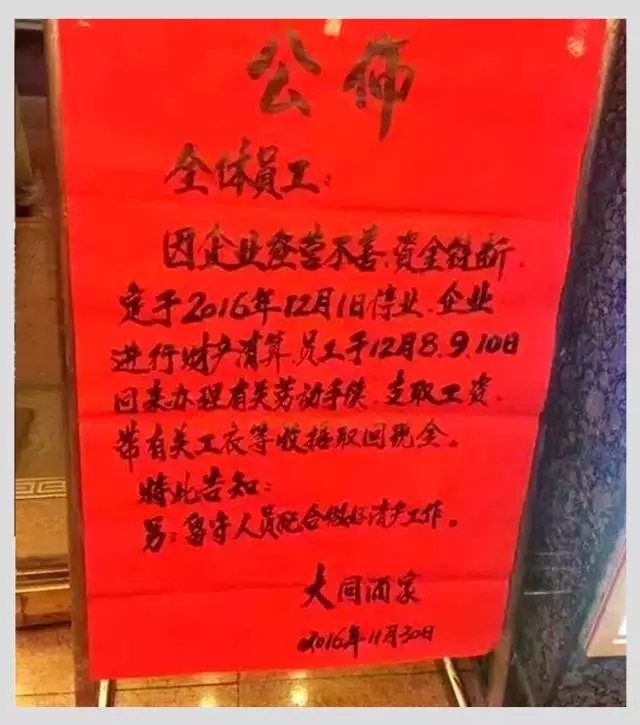 公佈
全体员工:
因企业经营不善、资金链断,
定于2016年12月1日停业、企业
进行财产清算、员工于12月8.9.10日
回来办理有关劳动手续、支取工资、
带有关工衣等收据取回现金。
特此告知:
另:留守人员配合做好清产工作。
大同酒家
2016年11月30日